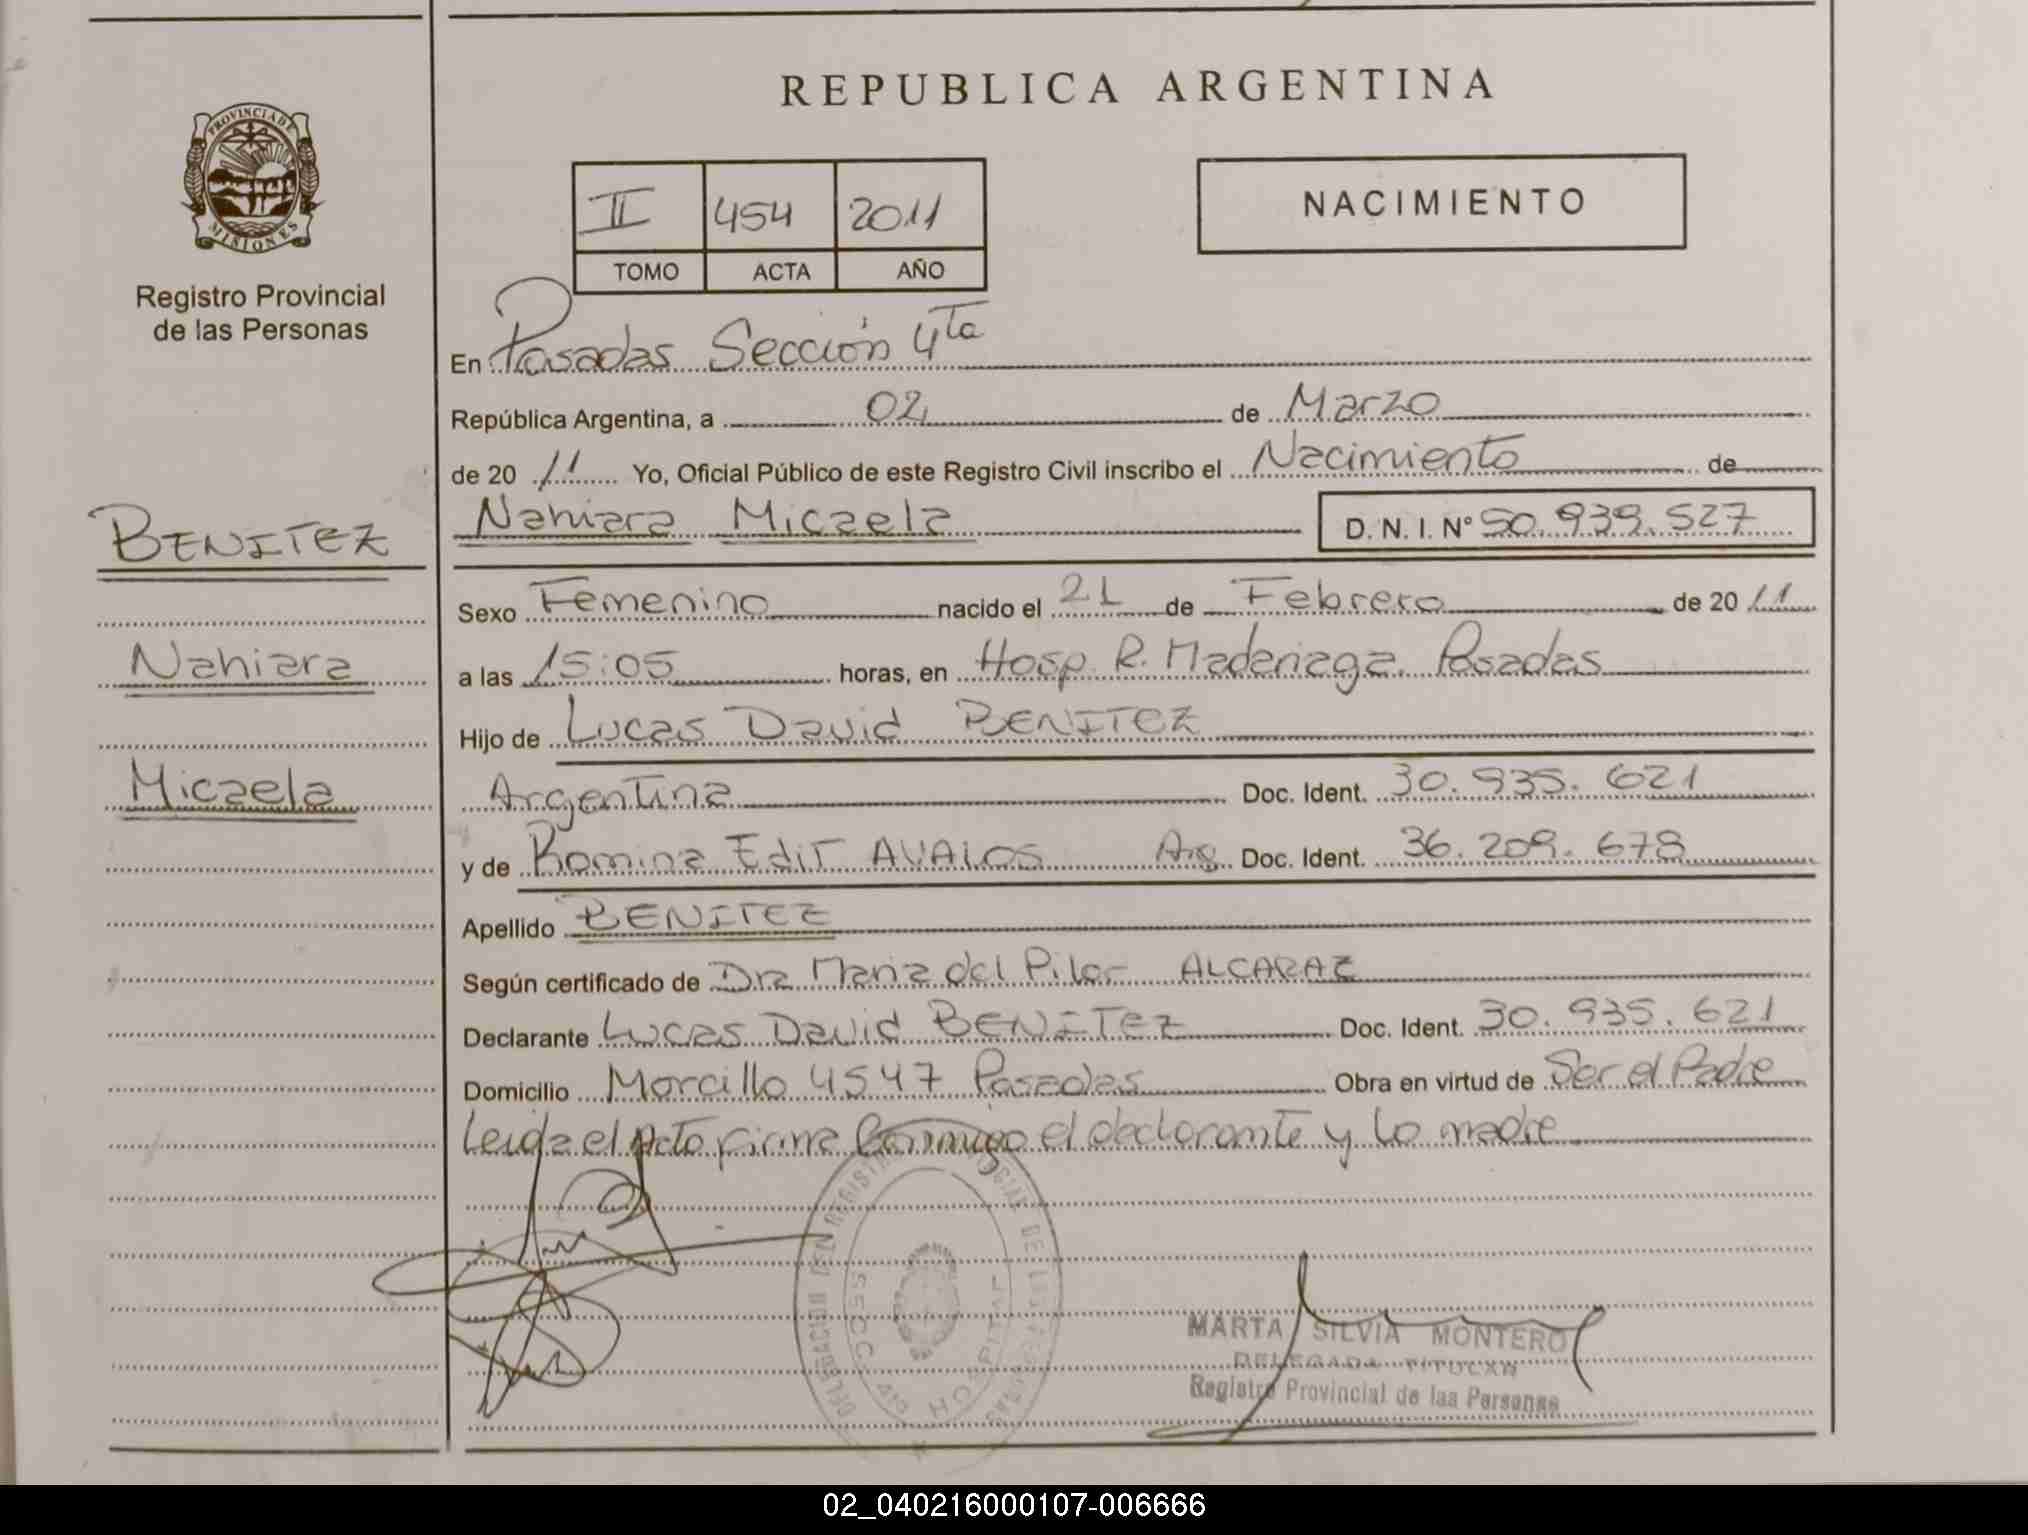 REPUBLICA ARGENTINA
PROVINCIA DE
MISIONES
Registro Provincial
de las Personas
II 454 2011
TOMO ACTA AÑO
NACIMIENTO
En Posadas Sección 4Ta
República Argentina, a 02 de Marzo
de 20 11 Yo, Oficial Público de este Registro Civil inscribo el Nacimiento de
BENITEZ
Nahiara
Micaela
Nahiara Micaela D. N. I. Nº 50.939.527
Sexo Femenino nacido el 21 de Febrero de 20 11
a las 15:05 horas, en Hosp. R. Madariaga. Posadas
Hijo de Lucas David BENITEZ
Argentina Doc. Ident. 30.935.621
y de Romina Edit AVALOS Arg. Doc. Ident. 36.209.678
Apellido BENITEZ
Según certificado de Dra Maria del Pilar ALCARAZ
Declarante Lucas David BENITEZ Doc. Ident. 30.935.621
Domicilio Morcillo 4547 Posadas Obra en virtud de Ser el Padre
Leida el Acta firma Conmigo el declarante y la madre
DELEGACION DEL REGISTRO PROVINCIAL DE LAS PERSONAS
SECC. 4ta HOSPITAL
MARTA SILVIA MONTERO
DELEGADA TITULAR
Registro Provincial de las Personas
02_040216000107-006666